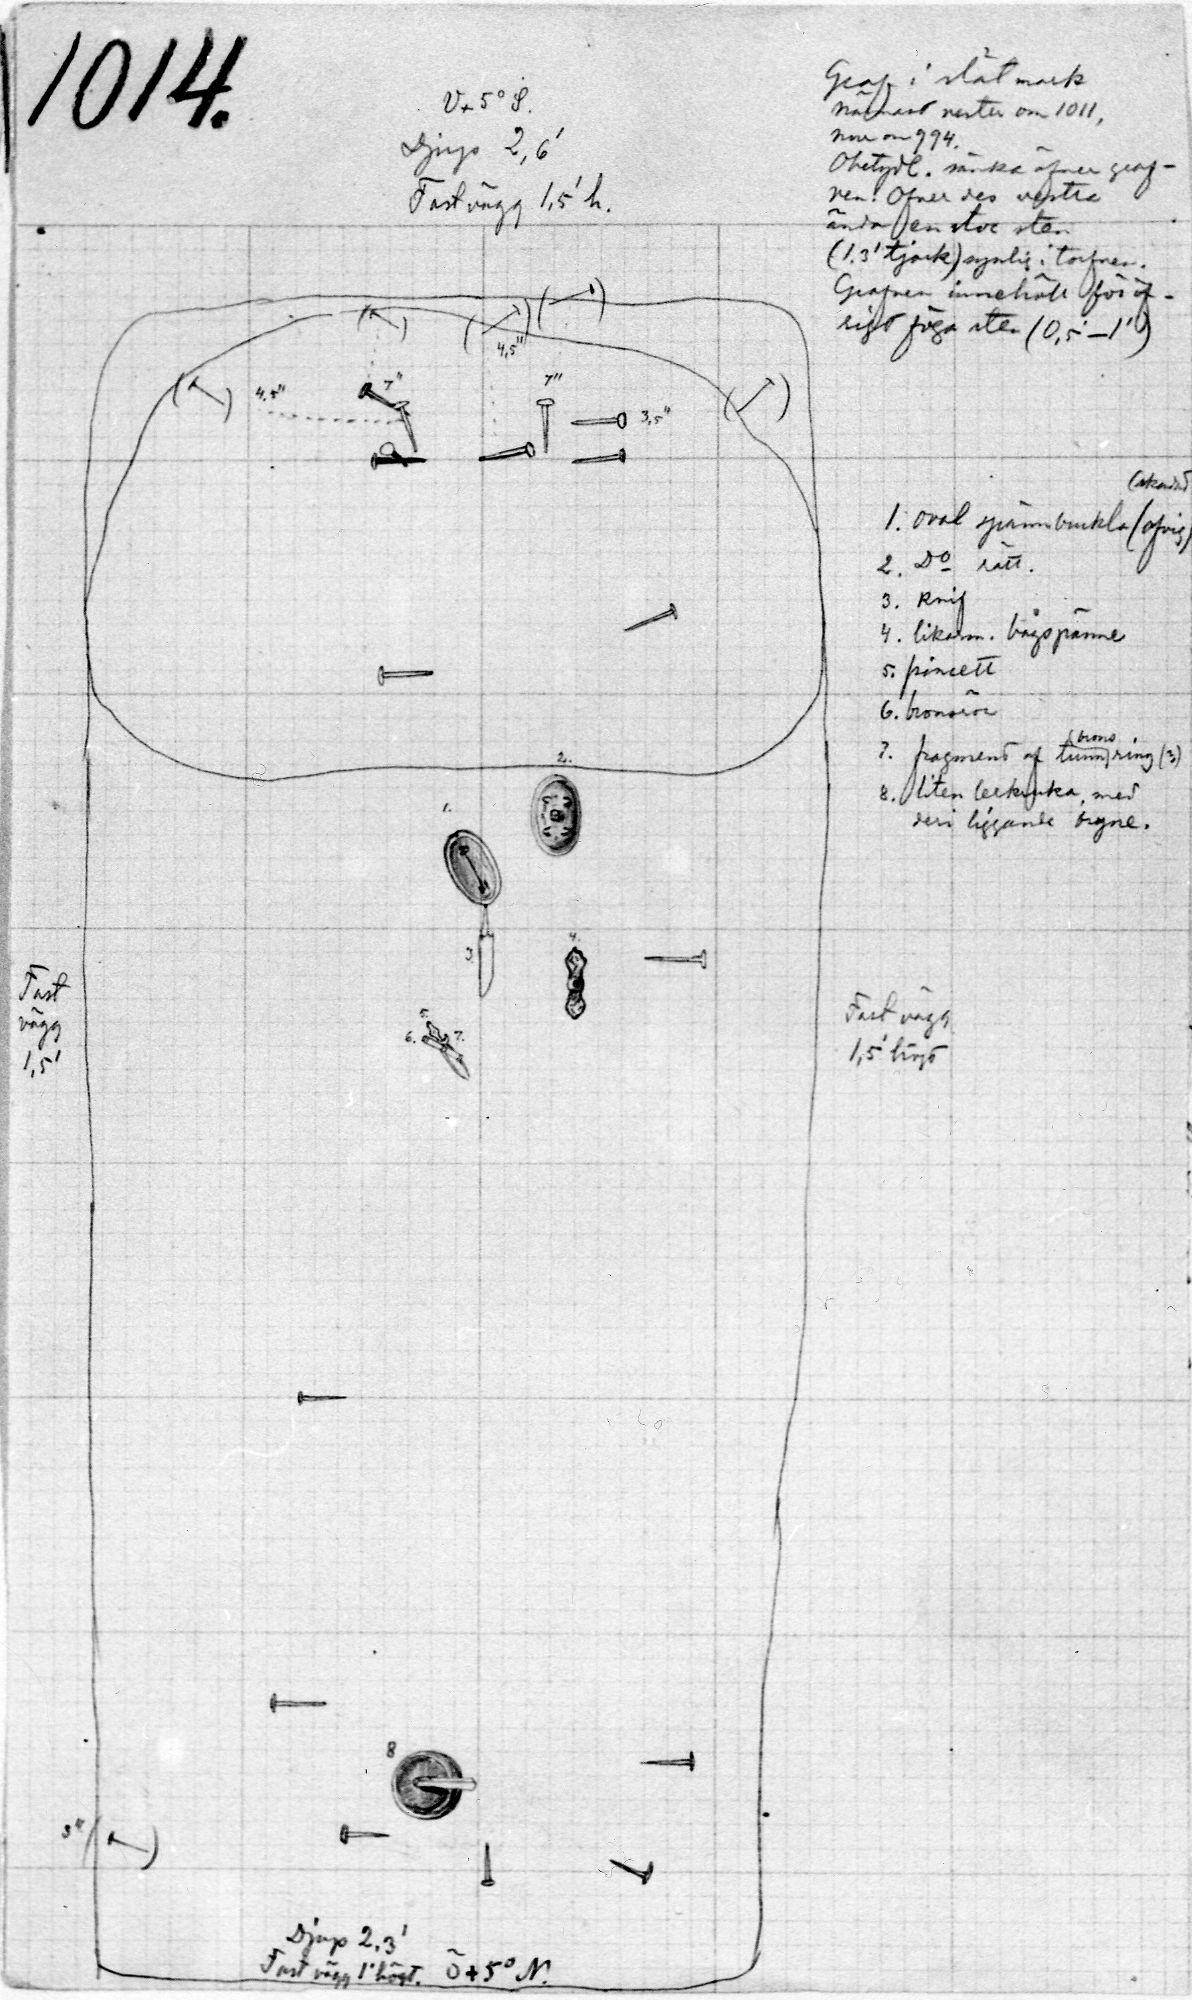 1014.
V+5° S.
Djup 2,6'
Fast vägg 1,5' h.
Graf i slät mark
närmast vester om 1011,
norr om 994.
Obetydl. sänka öfver graf-
ven. Ofver des vestra
ända en stor sten
(1.3' tjock) synlig i torfven.
Grafven innehöll för öf-
rigt föga sten (0,5'–1')
4,5"
4,5"
7"
7"
3,5"
1. oval spännbuckla (afvig)
2. D° rätt.
3. Knif
4. likarm. bågspänne
5. pincett
6. bronsrör
7. fragment af tunn (brons) ring (3)
8. liten lerkruka, med
deri liggande bryne.
2.
1.
3
4.
5.
6. 7.
Fast
vägg
1,5'
Fast vägg
1,5' högt
8
3"
Djup 2,3'
Fast vägg 1' högt. Ö+5° N.